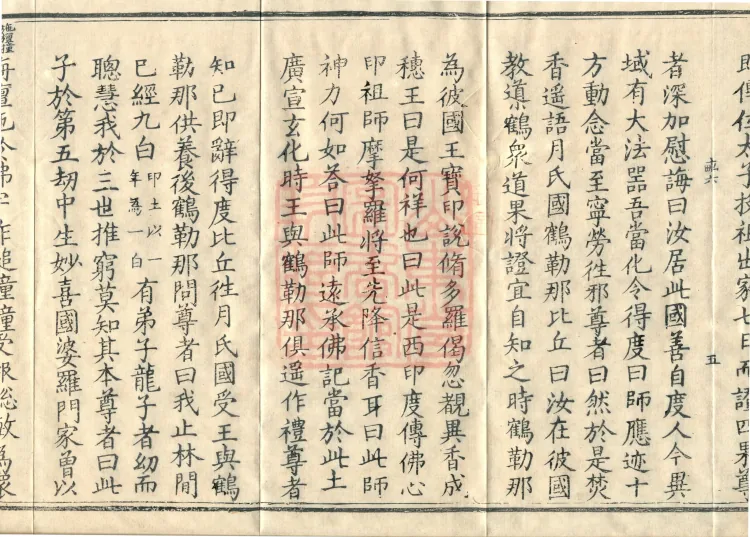 即傳位太子投祖出家七日而證四果尊
者深加慰誨曰汝居此國善自度人今異
六
五
域有大法器吾當化令得度曰師應迹十
方動念當至寧勞徃邪尊者曰然於是焚
香遥語月氏國鶴勒那比丘曰汝在彼國
教導鶴衆道果將證宜自知之時鶴勒那
為彼國王寶印說脩多羅偈忽覩異香成
穗王曰是何祥也曰此是西印度傳佛心
印祖師摩拏羅將至先降信香耳曰此師
神力何如荅曰此師遠承佛記當於此土
廣宣玄化時王與鶴勒那俱遥作禮尊者
知已即辭得度比丘徃月氏國受王與鶴
勒那供養後鶴勒那問尊者曰我止林間
已經九白印土以一年為一白有弟子龍子者幼而
聰慧我於三世推窮莫知其本尊者曰此
子於第五劫中生妙喜國婆羅門家曾以
受報聡敏為衆